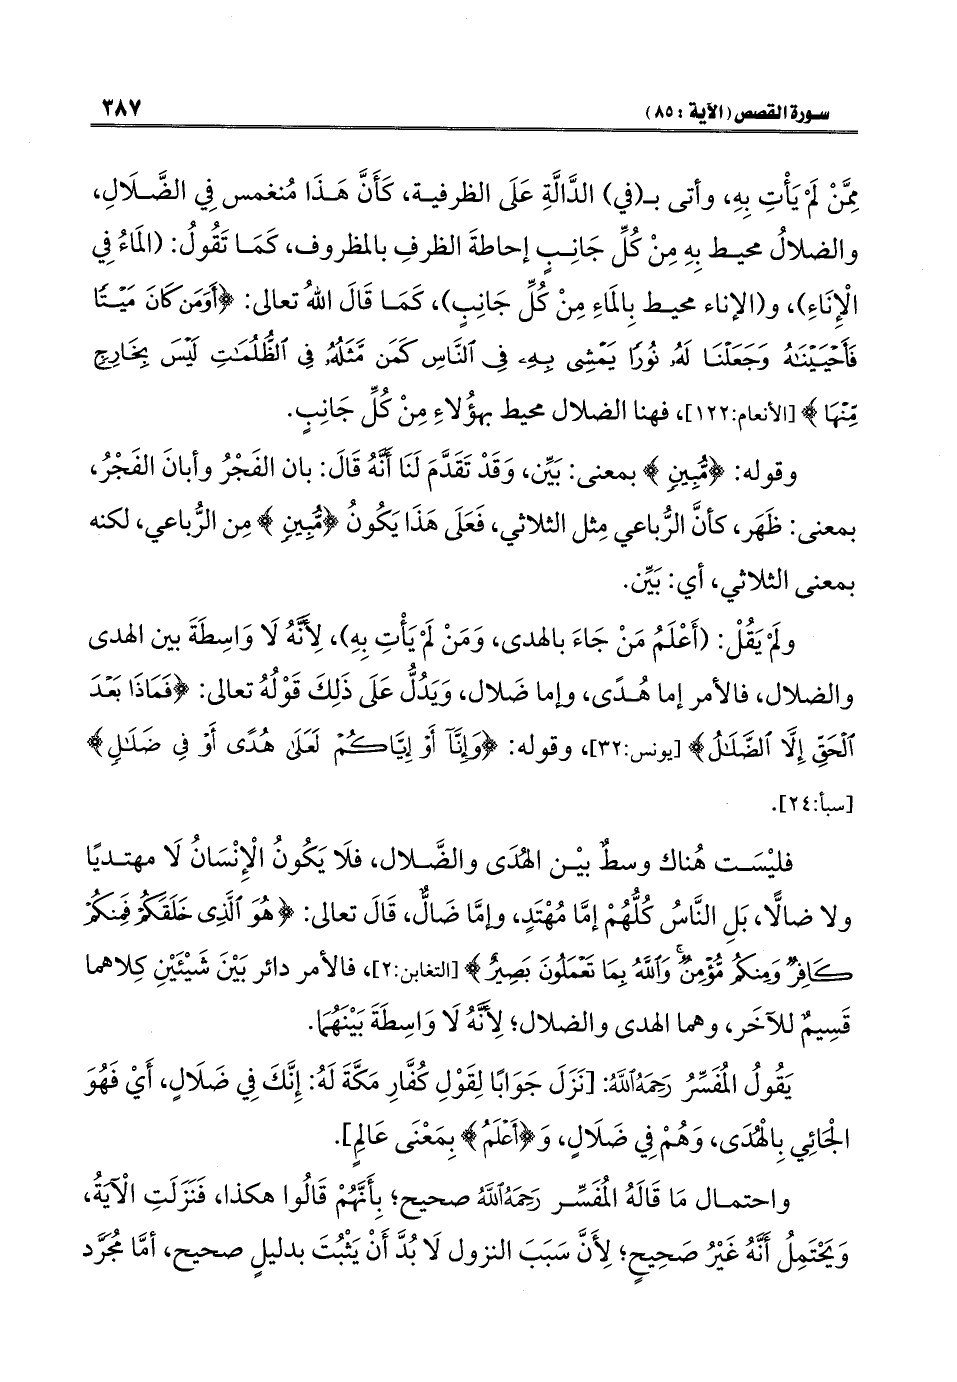 سورة القصص (الآية : ٨٥) ٣٨٧
مِمَّنْ لَمْ يَأْتِ بِهِ، وأتى بـ(في) الدَّالَّةِ عَلَى الظرفية، كَأَنَّ هَذَا مُنغمس فِي الضَّلَالِ،
والضلالُ محيط بِهِ مِنْ كُلِّ جَانِبٍ إحاطةَ الظرفِ بالمظروف، كَمَا تَقُولُ: (الْمَاءُ فِي
الْإِنَاءِ)، و(الإناء محيط بِالْمَاءِ مِنْ كُلِّ جَانِبٍ)، كَمَا قَالَ اللهُ تعالى: ﴿أَوَمَن كَانَ مَيْتًا
فَأَحْيَيْنَٰهُ وَجَعَلْنَا لَهُۥ نُورًا يَمْشِى بِهِۦ فِى ٱلنَّاسِ كَمَن مَّثَلُهُۥ فِى ٱلظُّلُمَٰتِ لَيْسَ بِخَارِجٍ
مِّنْهَا﴾ [الأنعام:١٢٢]، فهنا الضلال محيط بهؤلاءِ مِنْ كُلِّ جَانِبٍ.
وقوله: ﴿مُّبِينٍ﴾ بمعنى: بَيِّن، وَقَدْ تَقَدَّمَ لَنَا أَنَّهُ قَالَ: بان الفَجْرُ وأبانَ الفَجْرُ،
بمعنى: ظَهَر، كأنَّ الرُّباعي مِثل الثلاثي، فَعَلَى هَذَا يَكُونُ ﴿مُّبِينٍ﴾ مِن الرُّباعي، لكنه
بمعنى الثلاثي، أي: بَيِّن.
ولَمْ يَقُلْ: (أَعْلَمُ مَنْ جَاءَ بالهدى، وَمَنْ لَمْ يَأْتِ بِهِ)، لِأَنَّهُ لَا وَاسِطَةَ بين الهدى
والضلال، فالأمر إما هُدًى، وإما ضَلال، وَيَدُلُّ عَلَى ذَلِكَ قَوْلُهُ تعالى: ﴿فَمَاذَا بَعْدَ
ٱلْحَقِّ إِلَّا ٱلضَّلَٰلُ﴾ [يونس:٣٢]، وقوله: ﴿وَإِنَّآ أَوْ إِيَّاكُمْ لَعَلَىٰ هُدًى أَوْ فِى ضَلَٰلٍ﴾
[سبأ:٢٤].
فليْسَت هُناك وسطٌ بيْن الهُدَى والضَّلال، فلَا يَكُونُ الْإِنْسَانُ لَا مهتديًا
ولا ضالًّا، بَلِ النَّاسُ كُلُّهُمْ إمَّا مُهْتَدٍ، وإمَّا ضَالٌّ، قَالَ تعالى: ﴿هُوَ ٱلَّذِى خَلَقَكُمْ فَمِنكُمْ
كَافِرٌ وَمِنكُم مُّؤْمِنٌ ۚ وَٱللَّهُ بِمَا تَعْمَلُونَ بَصِيرٌ﴾ [التغابن:٢]، فالأمر دائر بَيْنَ شَيْئَيْنِ كِلاهما
قَسِيمٌ للآخَر، وهما الهدى والضلال؛ لِأَنَّهُ لَا وَاسِطَةَ بَيْنَهُمَا.
يَقُولُ الْمُفَسِّرُ رَحِمَهُ ٱللَّهُ: [نَزَلَ جَوَابًا لِقَوْلِ كُفَّارِ مَكَّةَ لَهُ: إِنَّكَ فِي ضَلَالٍ، أَيْ فَهُوَ
الْجَائِي بِالْهُدَى، وَهُمْ فِي ضَلَالٍ، وَ﴿أَعْلَمُ﴾ بِمَعْنَى عَالِمٍ].
واحتمال مَا قَالَهُ الْمُفَسِّر رَحِمَهُ ٱللَّهُ صحيح؛ بِأَنَّهُمْ قَالُوا هكذا، فَنَزَلَتِ الْآيَةُ،
وَيَحْتَمِلُ أَنَّهُ غَيْرُ صَحِيحٍ؛ لِأَنَّ سَبَبَ النزول لَا بُدَّ أَنْ يَثْبُتَ بدليلٍ صحيح، أمَّا مُجَرَّد